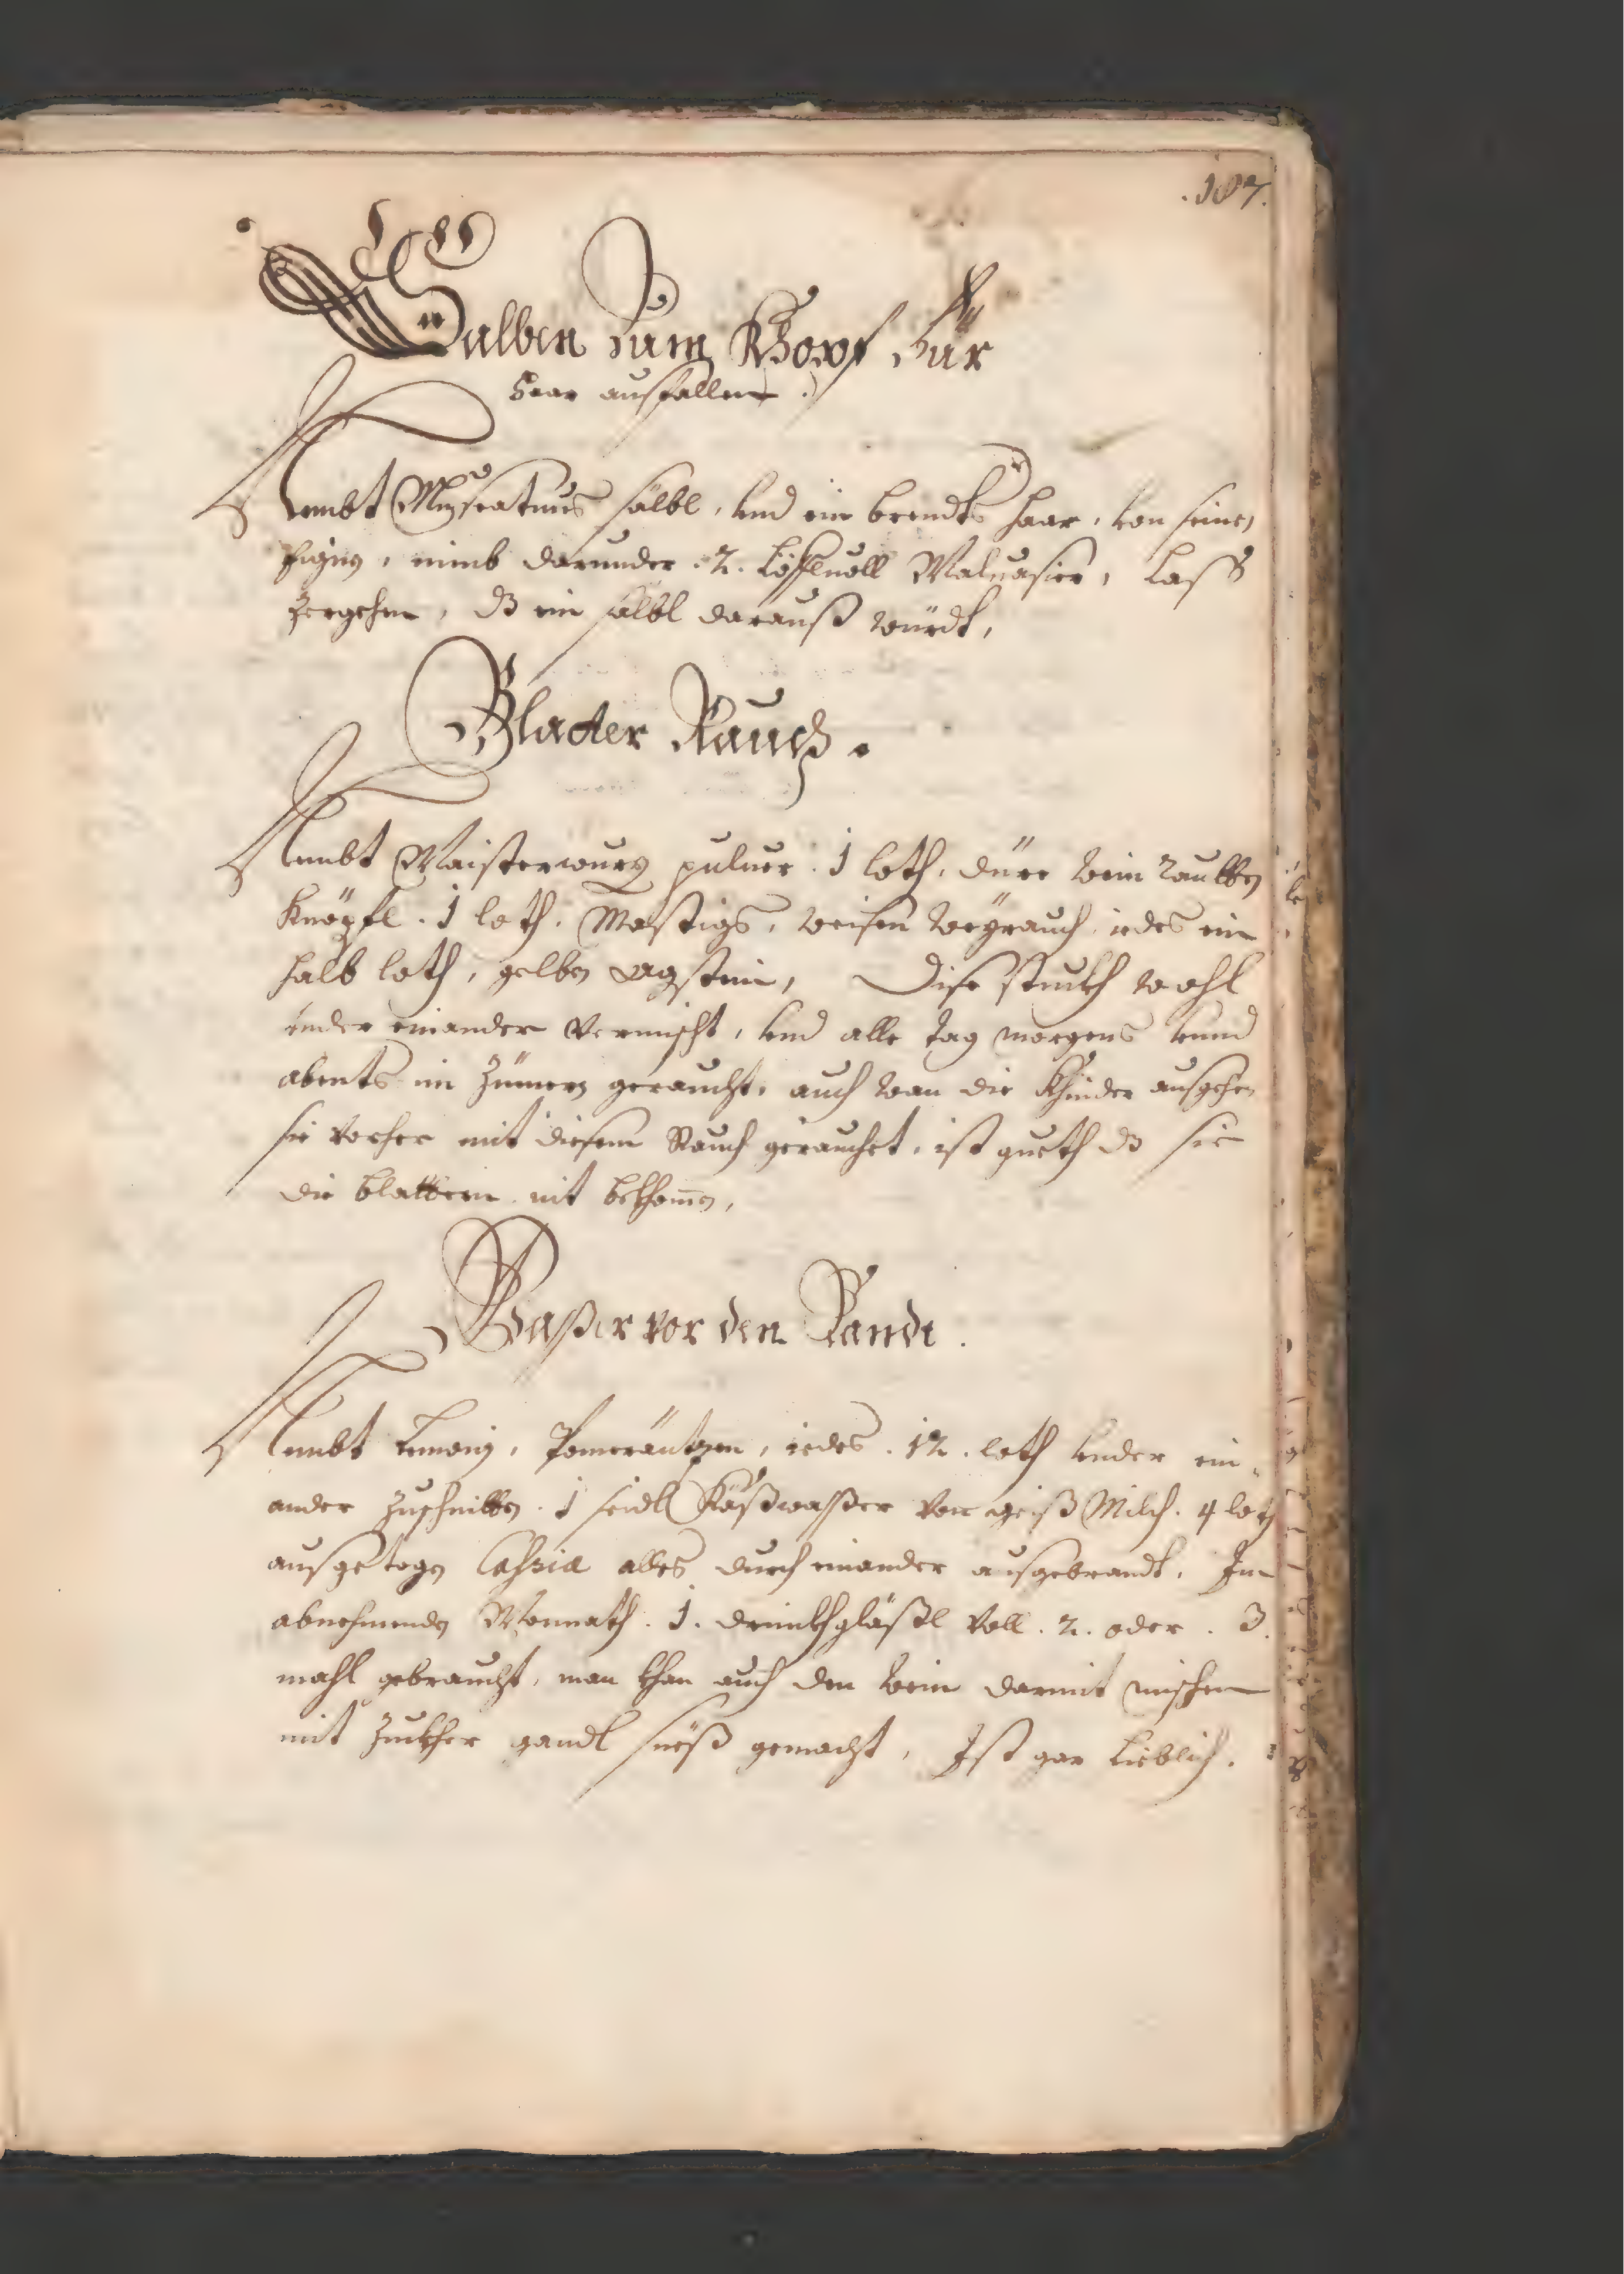 .187.
Salben Zum Khopf Für
Haar ausfallen.
Nembt Muscatnus sälbl, vnd ein brendts haar, von seinen
aignen, nimb darunder .2. Löffluoll Maluasier, Lass
zergehen, dz ein sälbl darauß würdt,
Blatter Rauch.
Nembt Maisterwurz puluer .1 loth, dürr wein rautten
Knöpfl .1 loth. Mastigs, weisen weyrauch iedes ein
halb loth, gelben agstein, Dise stuckh wohl
vnder einander Vermischt, vnd alle tag morgens vnnd
abents im Zimern geraucht, auch wan die Khinder ausgehen
sie vorher mit disem Rauch gerauchet, ist gueth dz sie
die blattern nit bekhomen,
Waßer vor den Sandt.
Nembt Lemonj, Pomeräntzen, iedes .12. loth vnder ein-
ander zuschnitten .1 seidl Käßwaßer von geiß Milch. 4 loth
ausgezogen Cassia alles durch einander ausgebrandt. Im
abnehmenden Monnath .1. drinkhgläßl Voll .2. oder .3.
mahl gebraucht, man khan auch den wein darmit mischen
mit Zuckher gandl süeß gemacht, Ist gar Lieblich.